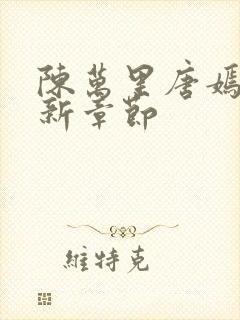 陳萬里唐嫣
新章節
維特克